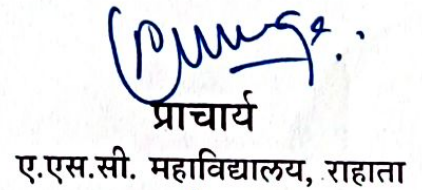 प्राचार्य
ए.एस.सी. महाविद्यालय, राहाता